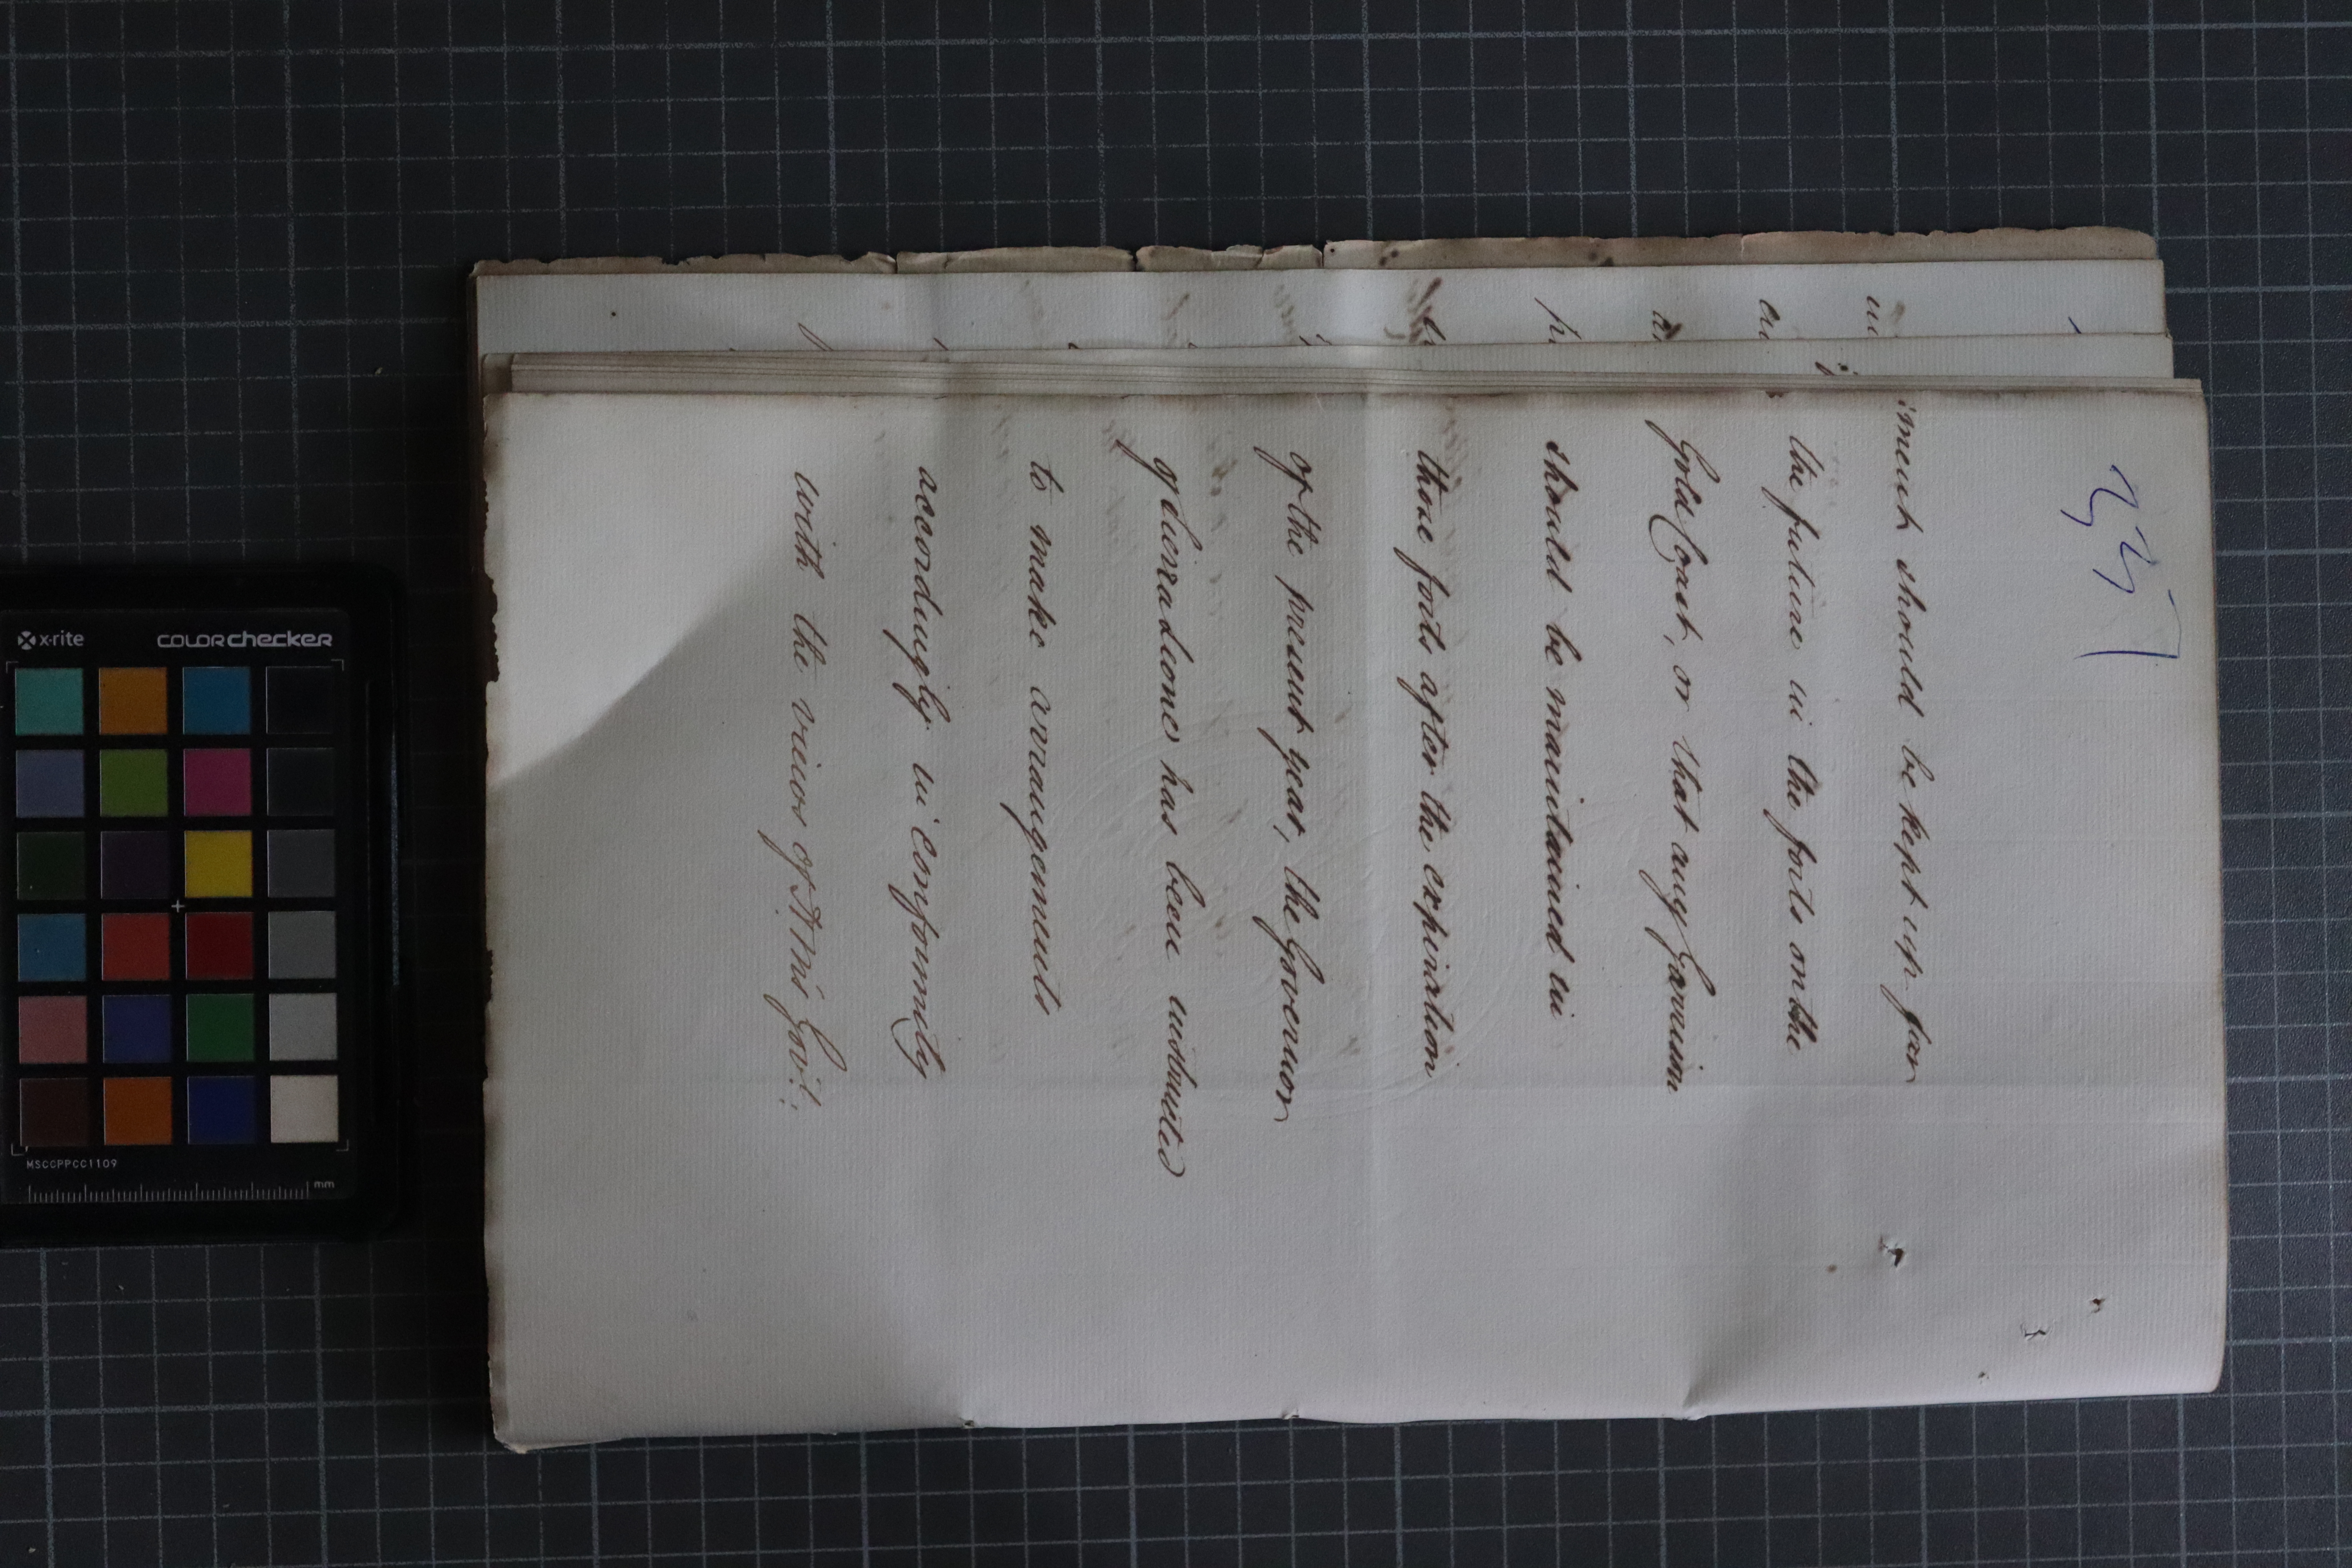 337
iment should be kept up for
the future in the forts on the
Gold Coast, or that any Garrison
should be maintained in
those forts after the expiration
of the present year, the Governor
of Sierra Leone has been instructed
to make arrangements
accordingly in conformity
with the views of H. M's Govt:
x-rite
colorchecker
MSCCPPCC1109
mm